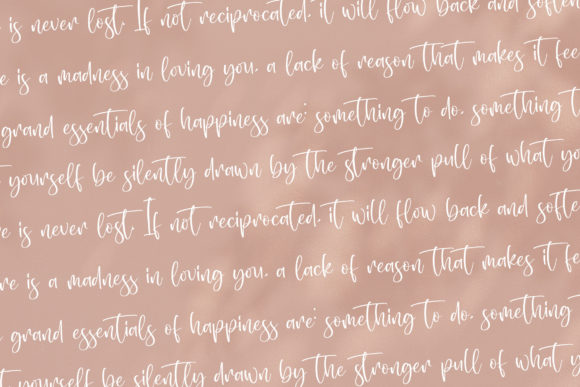 is never lost. If not reciprocated, it will flow back and soften
re is a madness in loving you, a lack of reason that makes it fee
grand essentials of happiness are: something to do, something t
yourself be silently drawn by the stronger pull of what yo
re is never lost. If not reciprocated, it will flow back and softe
ere is a madness in loving you, a lack of reason that makes it fe
grand essentials of happiness are: something to do, something
t yourself be silently drawn by the stronger pull of what y